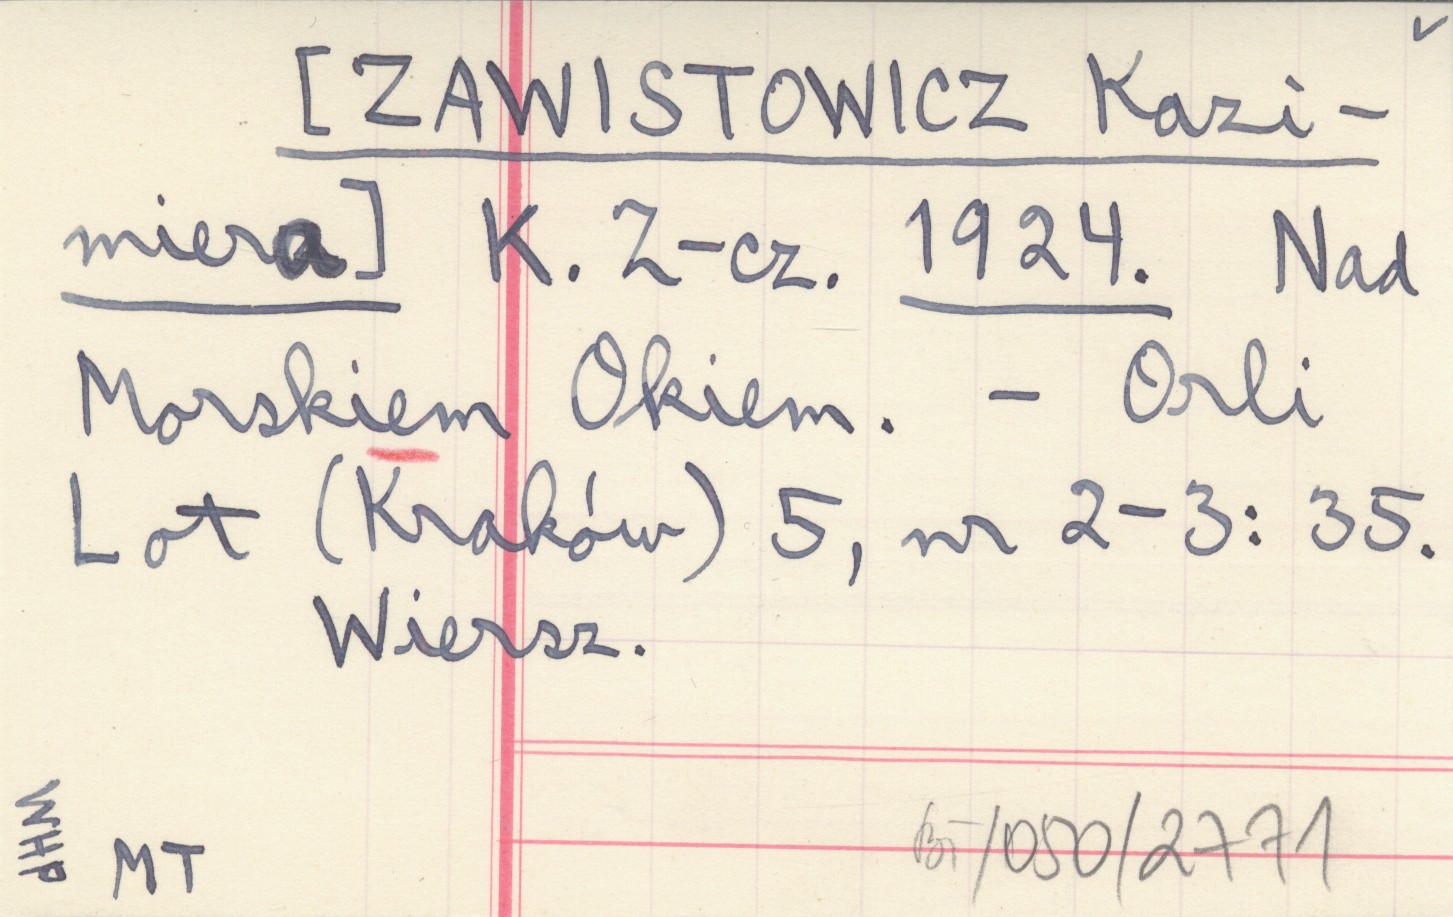 [ZAWISTOWICZ Kazi-
miera] K. Z-cz. 1924. Nad
Morskiem Okiem. - Orli
Lot (Kraków) 5, nr 2-3: 35.
Wiersz.
WHP
MT
BT/050/2771